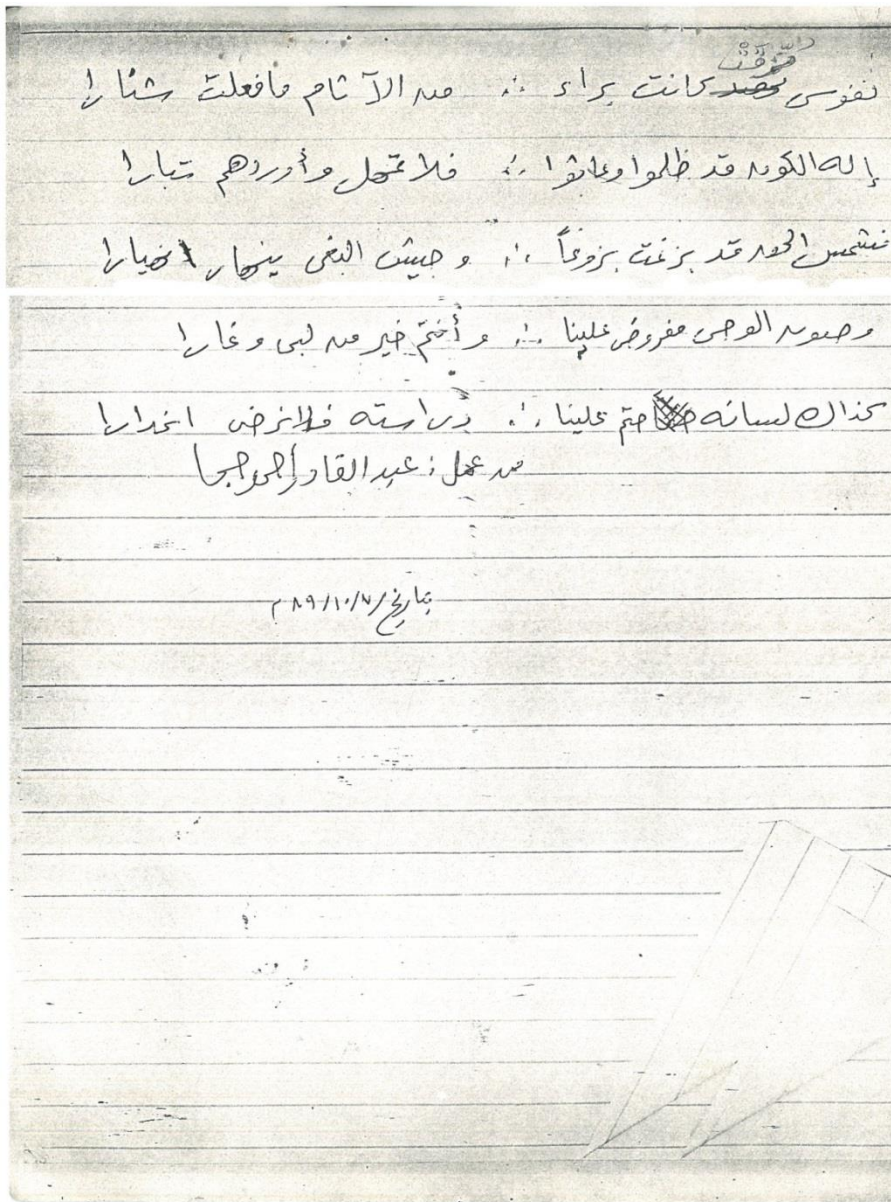 مزقت
نفوس كانت براء ∴ من الآثام ما فعلت شنارا
إله الكون قد ظلموا وعاثوا ∴ فلا تمهل وأوردهم تبارا
فشمس الحق قد بزغت بزوغاً ∴ وجيش البغي ينهار انهيارا
وصون الوحي مفروض علينا ∴ وأنتم خير من لبى وغارا
كذاك لسانه حتم علينا ∴ دراسته فلا نرضى انحدارا
من عمل: عبد القادر
بتاريخ ٨٩/١٠/٧م